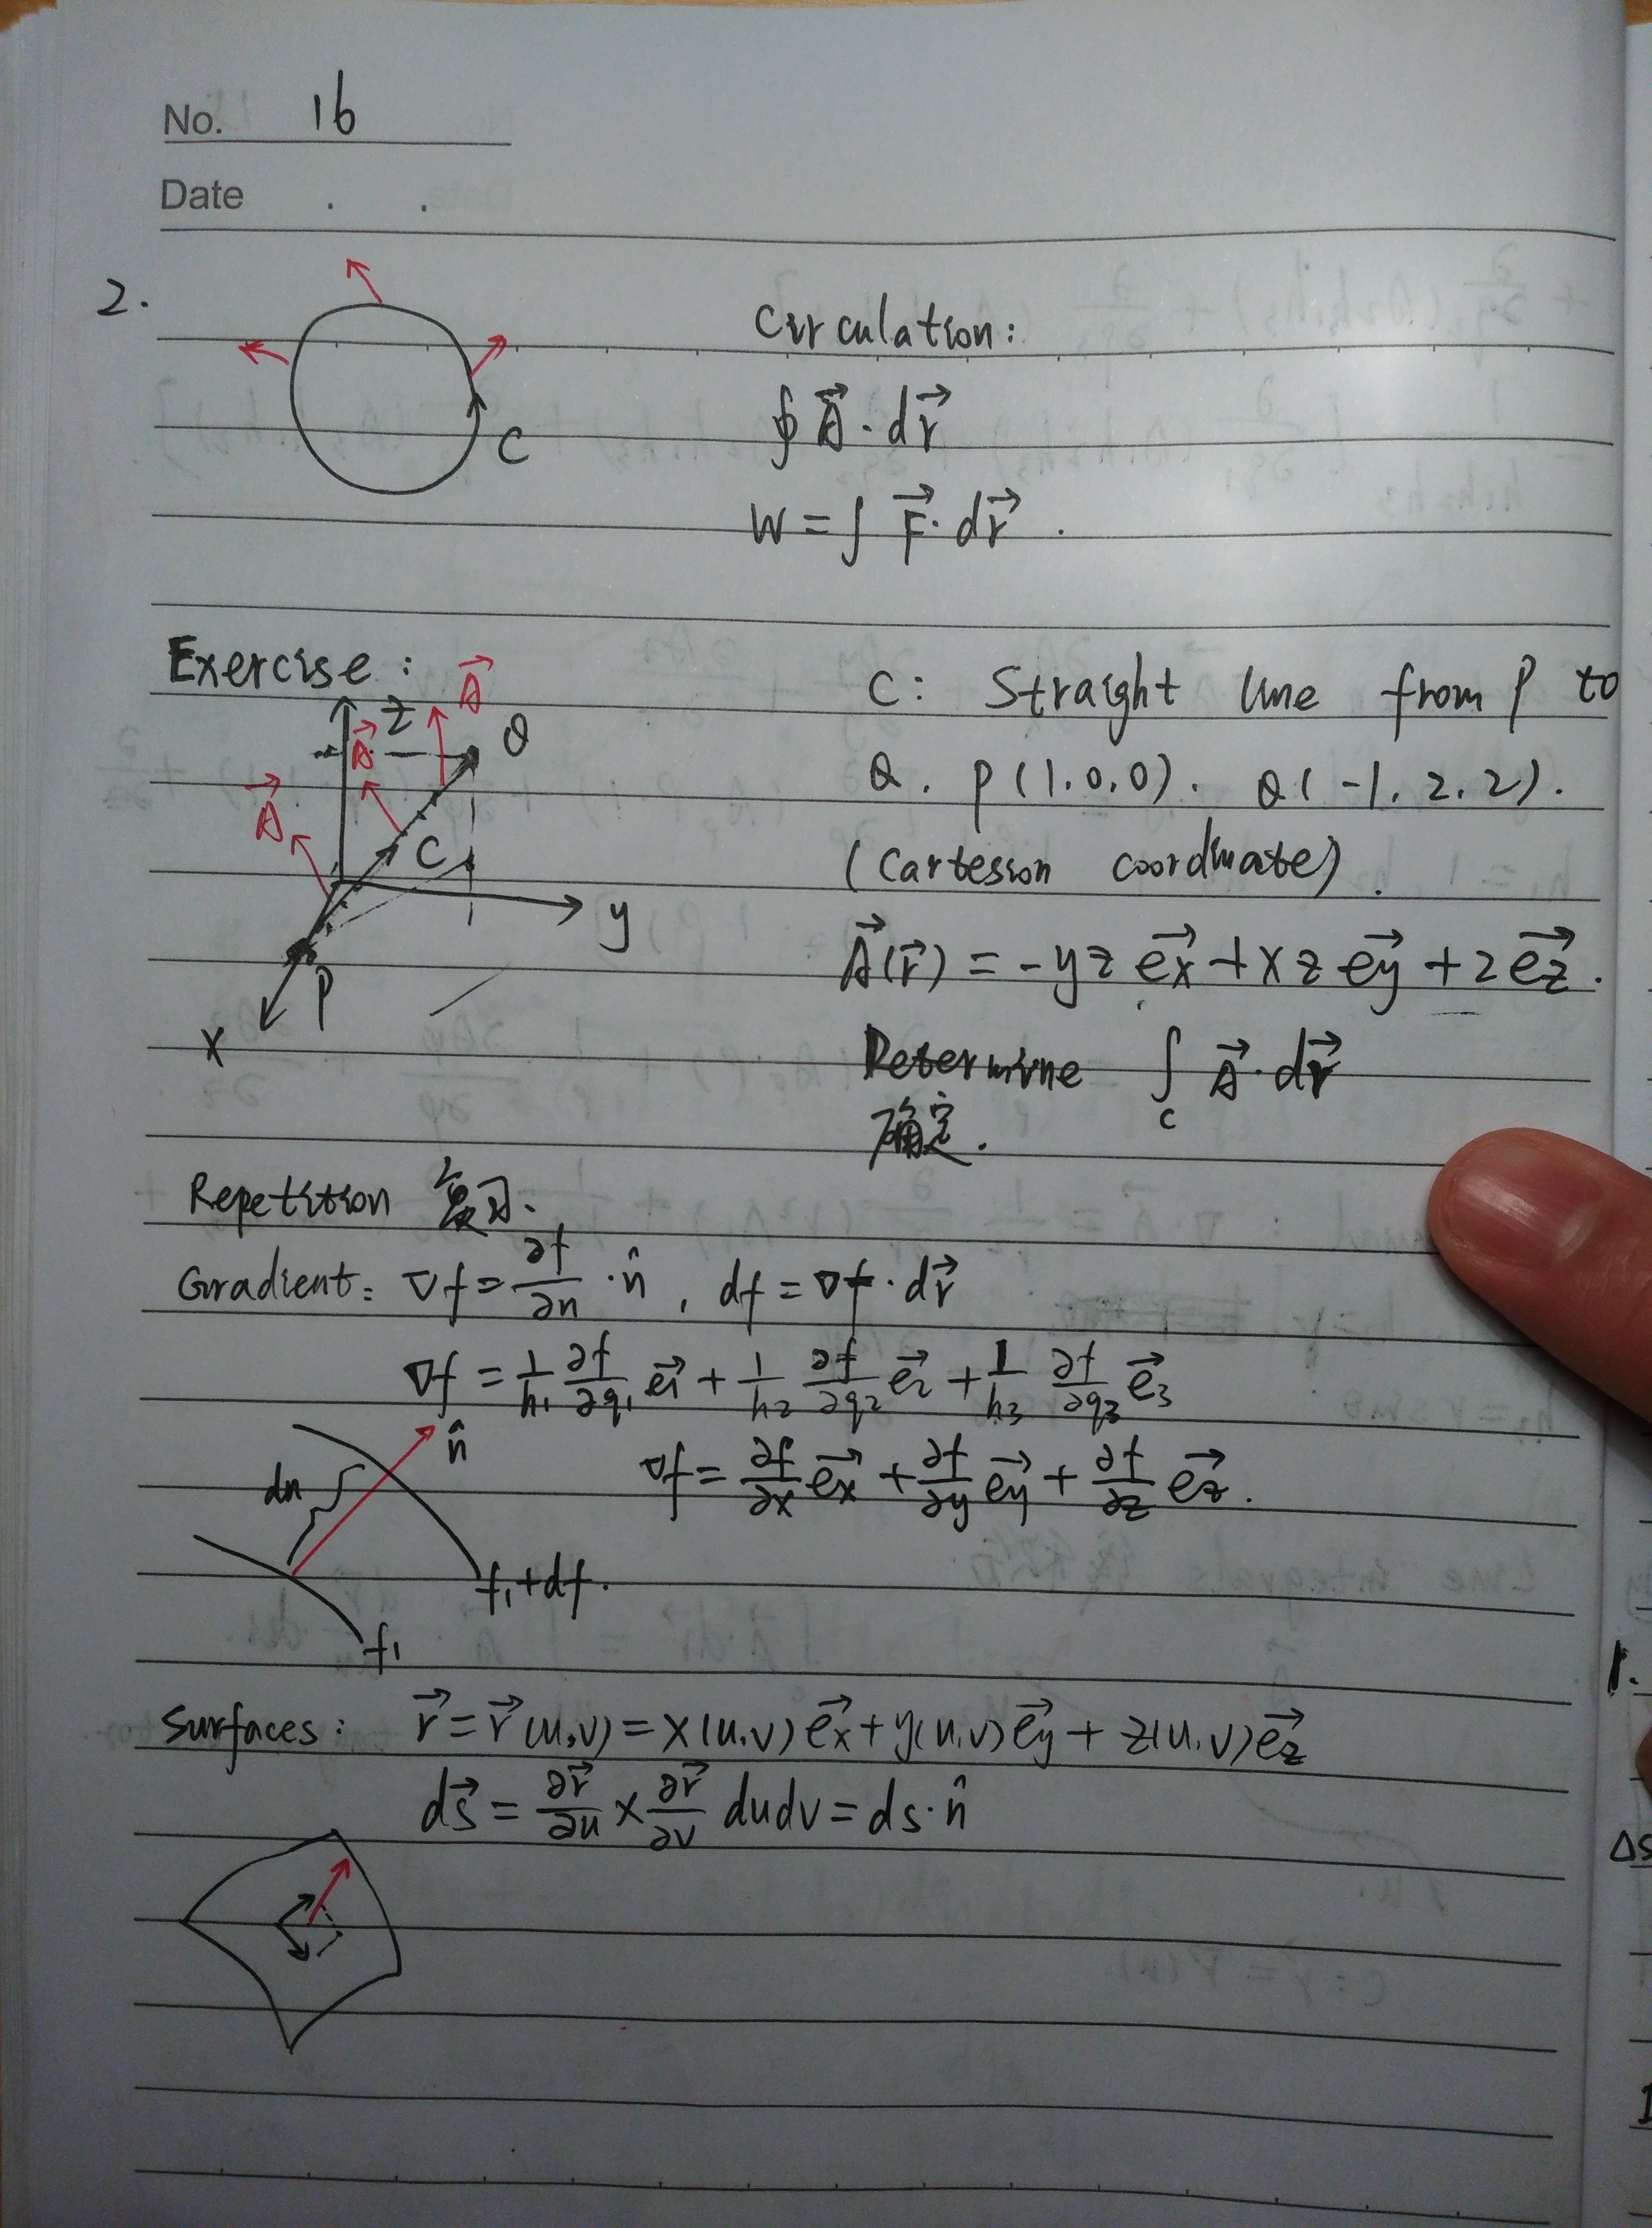 No. 16
Date . .
2.
Circulation:
C
∮ A⃗ · dr⃗
W = ∫ F⃗ · dr⃗ .
Exercise :
z
A⃗
A⃗
A⃗
Q
C
y
P
x
C: Straight line from P to
Q. P(1,0,0). Q(-1,2,2).
(Cartesion coordinate).
A⃗(r⃗) = -yz e⃗x + xz e⃗y + z e⃗z .
Determine ∫_C A⃗ · dr⃗
确定.
Repetition 复习.
Gradient: ∇f = ∂f/∂n · n̂ , df = ∇f · dr⃗
∇f = 1/h₁ ∂f/∂q₁ e⃗₁ + 1/h₂ ∂f/∂q₂ e⃗₂ + 1/h₃ ∂f/∂q₃ e⃗₃
n̂
∇f = ∂f/∂x e⃗x + ∂f/∂y e⃗y + ∂f/∂z e⃗z .
dn
f₁+df.
f₁
Surfaces: r⃗ = r⃗(u,v) = x(u,v) e⃗x + y(u,v) e⃗y + z(u,v) e⃗z
ds⃗ = ∂r⃗/∂u × ∂r⃗/∂v dudv = ds · n̂
1.
Δs